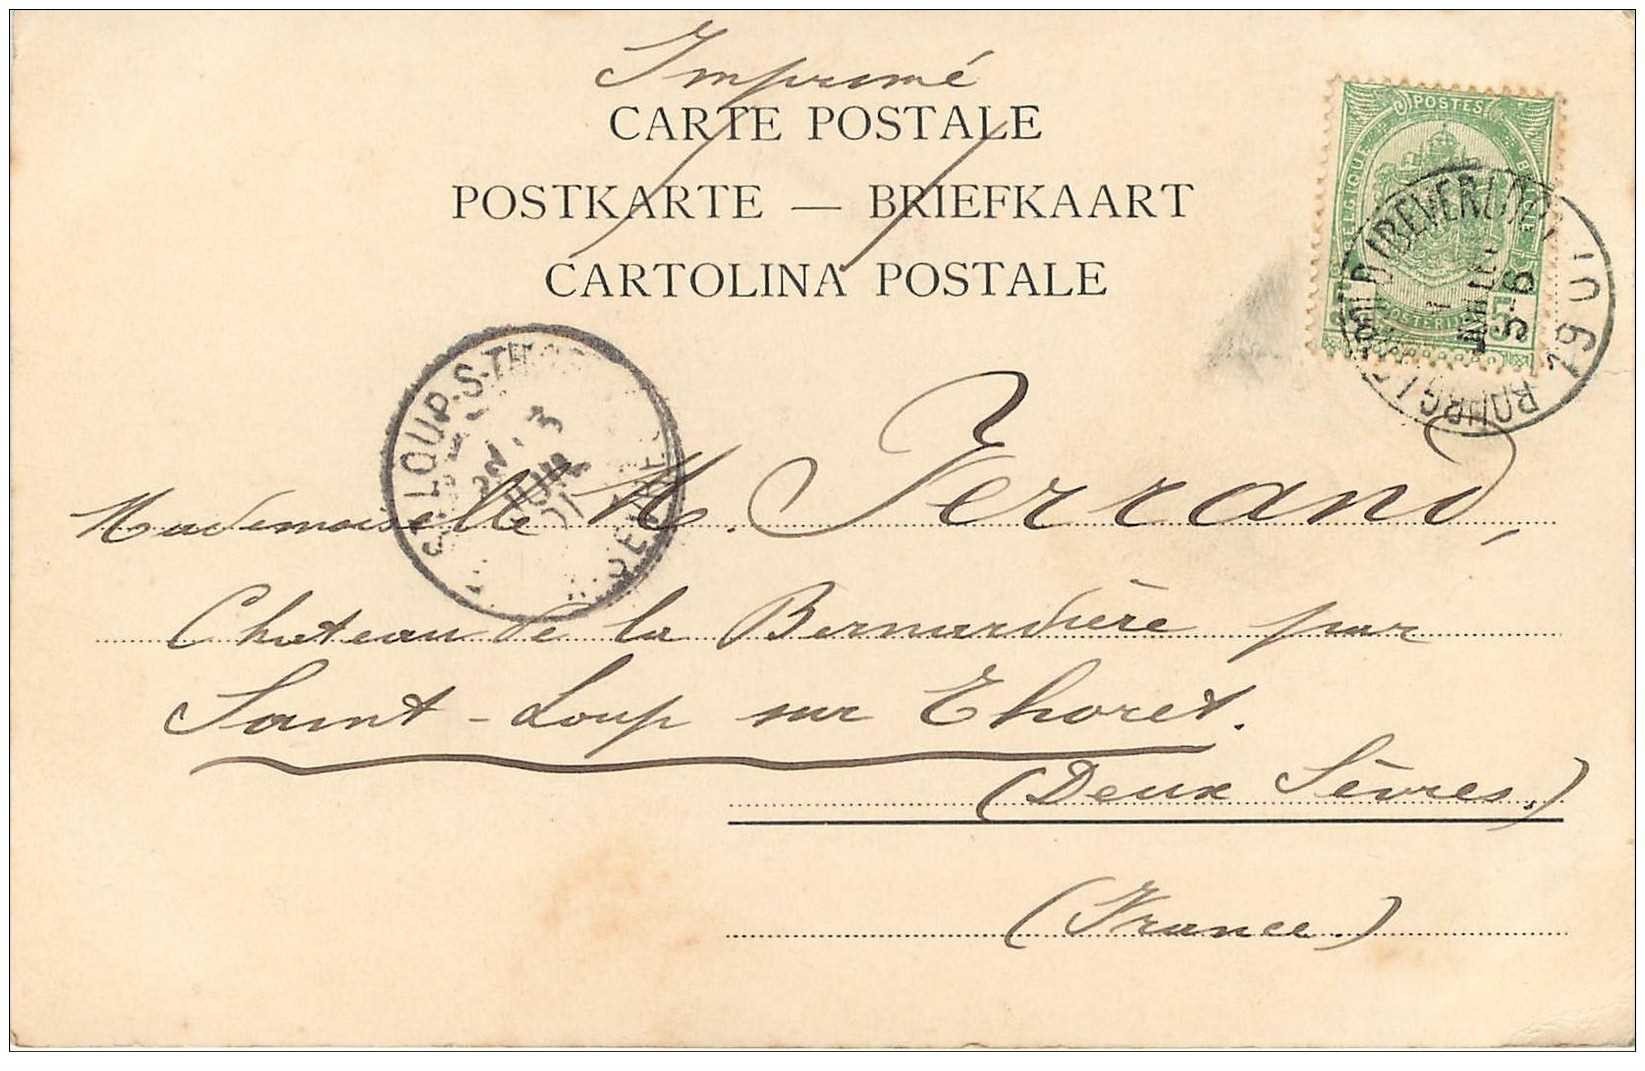 Imprimé
CARTE POSTALE
POSTKARTE — BRIEFKAART
CARTOLINA POSTALE
POSTES
BELGIQUE
BELGIË
POSTERIJEN
5
BEVERLOO
BOURG L
5-6
ST LOUP-S-THOUET
3
JUIN
01
Mademoiselle M. Ferrand,
Chateau de la Bernardière par
Saint-Loup sur Thoret.
(Deux Sèvres.)
(France.)